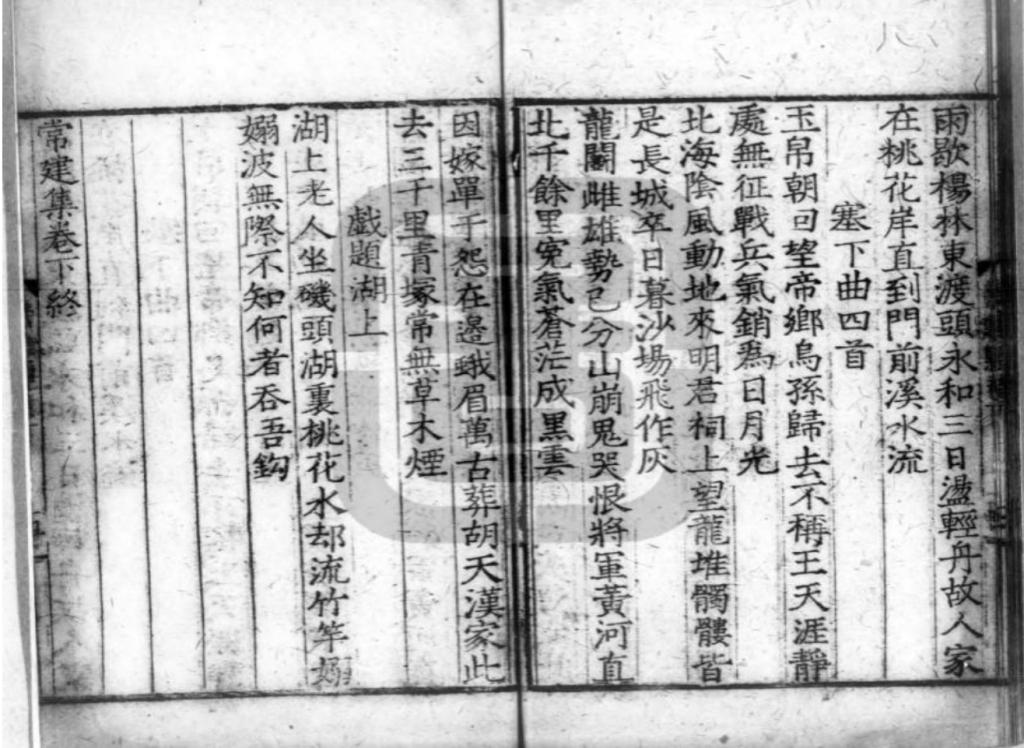 雨歇楊林東渡頭永和三日盪輕舟故人家
在桃花岸直到門前溪水流
塞下曲四首
玉帛朝回望帝鄉烏孫歸去不稱王天涯靜
處無征戰兵氣銷爲日月光
北海陰風動地來明君祠上望龍堆髑髏皆
是長城卒日暮沙場飛作灰
龍鬭雌雄勢已分山崩鬼哭恨將軍黃河直
北千餘里寃氣蒼茫成黑雲
因嫁單于怨在邊蛾眉萬古葬胡天漢家此
去三千里青塚常無草木煙
戲題湖上
湖上老人坐磯頭湖裏桃花水却流竹竿嫋
嫋波無際不知何者吞吾鈎
常建集卷下終